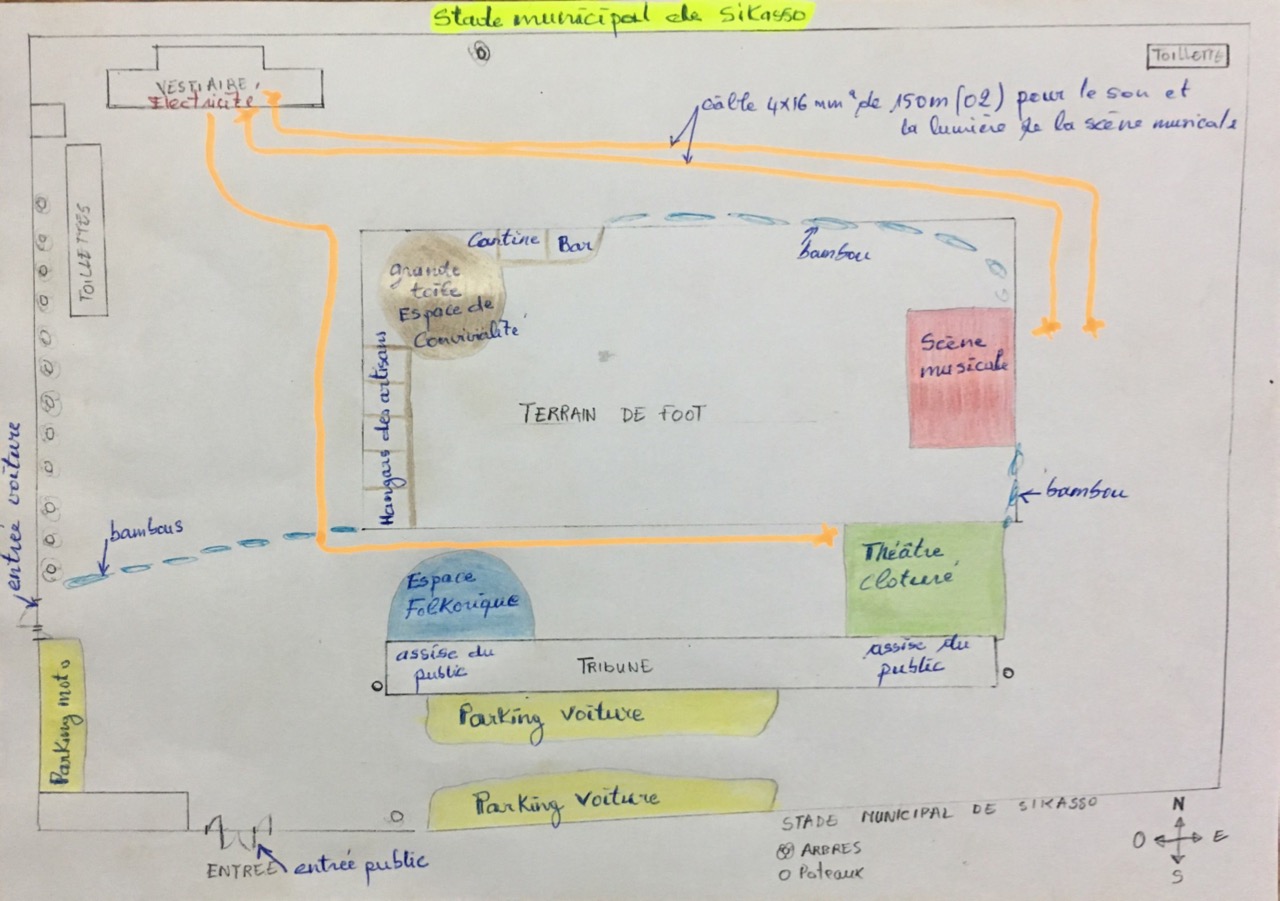 Stade municipal de Sikasso
TOILLETTE
VESTIAIRE
Electricité
câble 4x16 mm² de 150m (02) pour le son et
la lumière de la scène musicale
TOILLETTES
Cantine
Bar
bambou
grande
toile
Espace de
Convivialité
Scène
musicale
Hangars des artisans
TERRAIN DE FOOT
entrée voiture
bambou
bambous
Théâtre
cloturé
Espace
Folkorique
assise du
public
TRIBUNE
assise du
public
Parking moto
Parking voiture
Parking voiture
STADE MUNICIPAL DE SIKASSO
ARBRES
Poteaux
N
O
E
S
ENTREE
entrée public